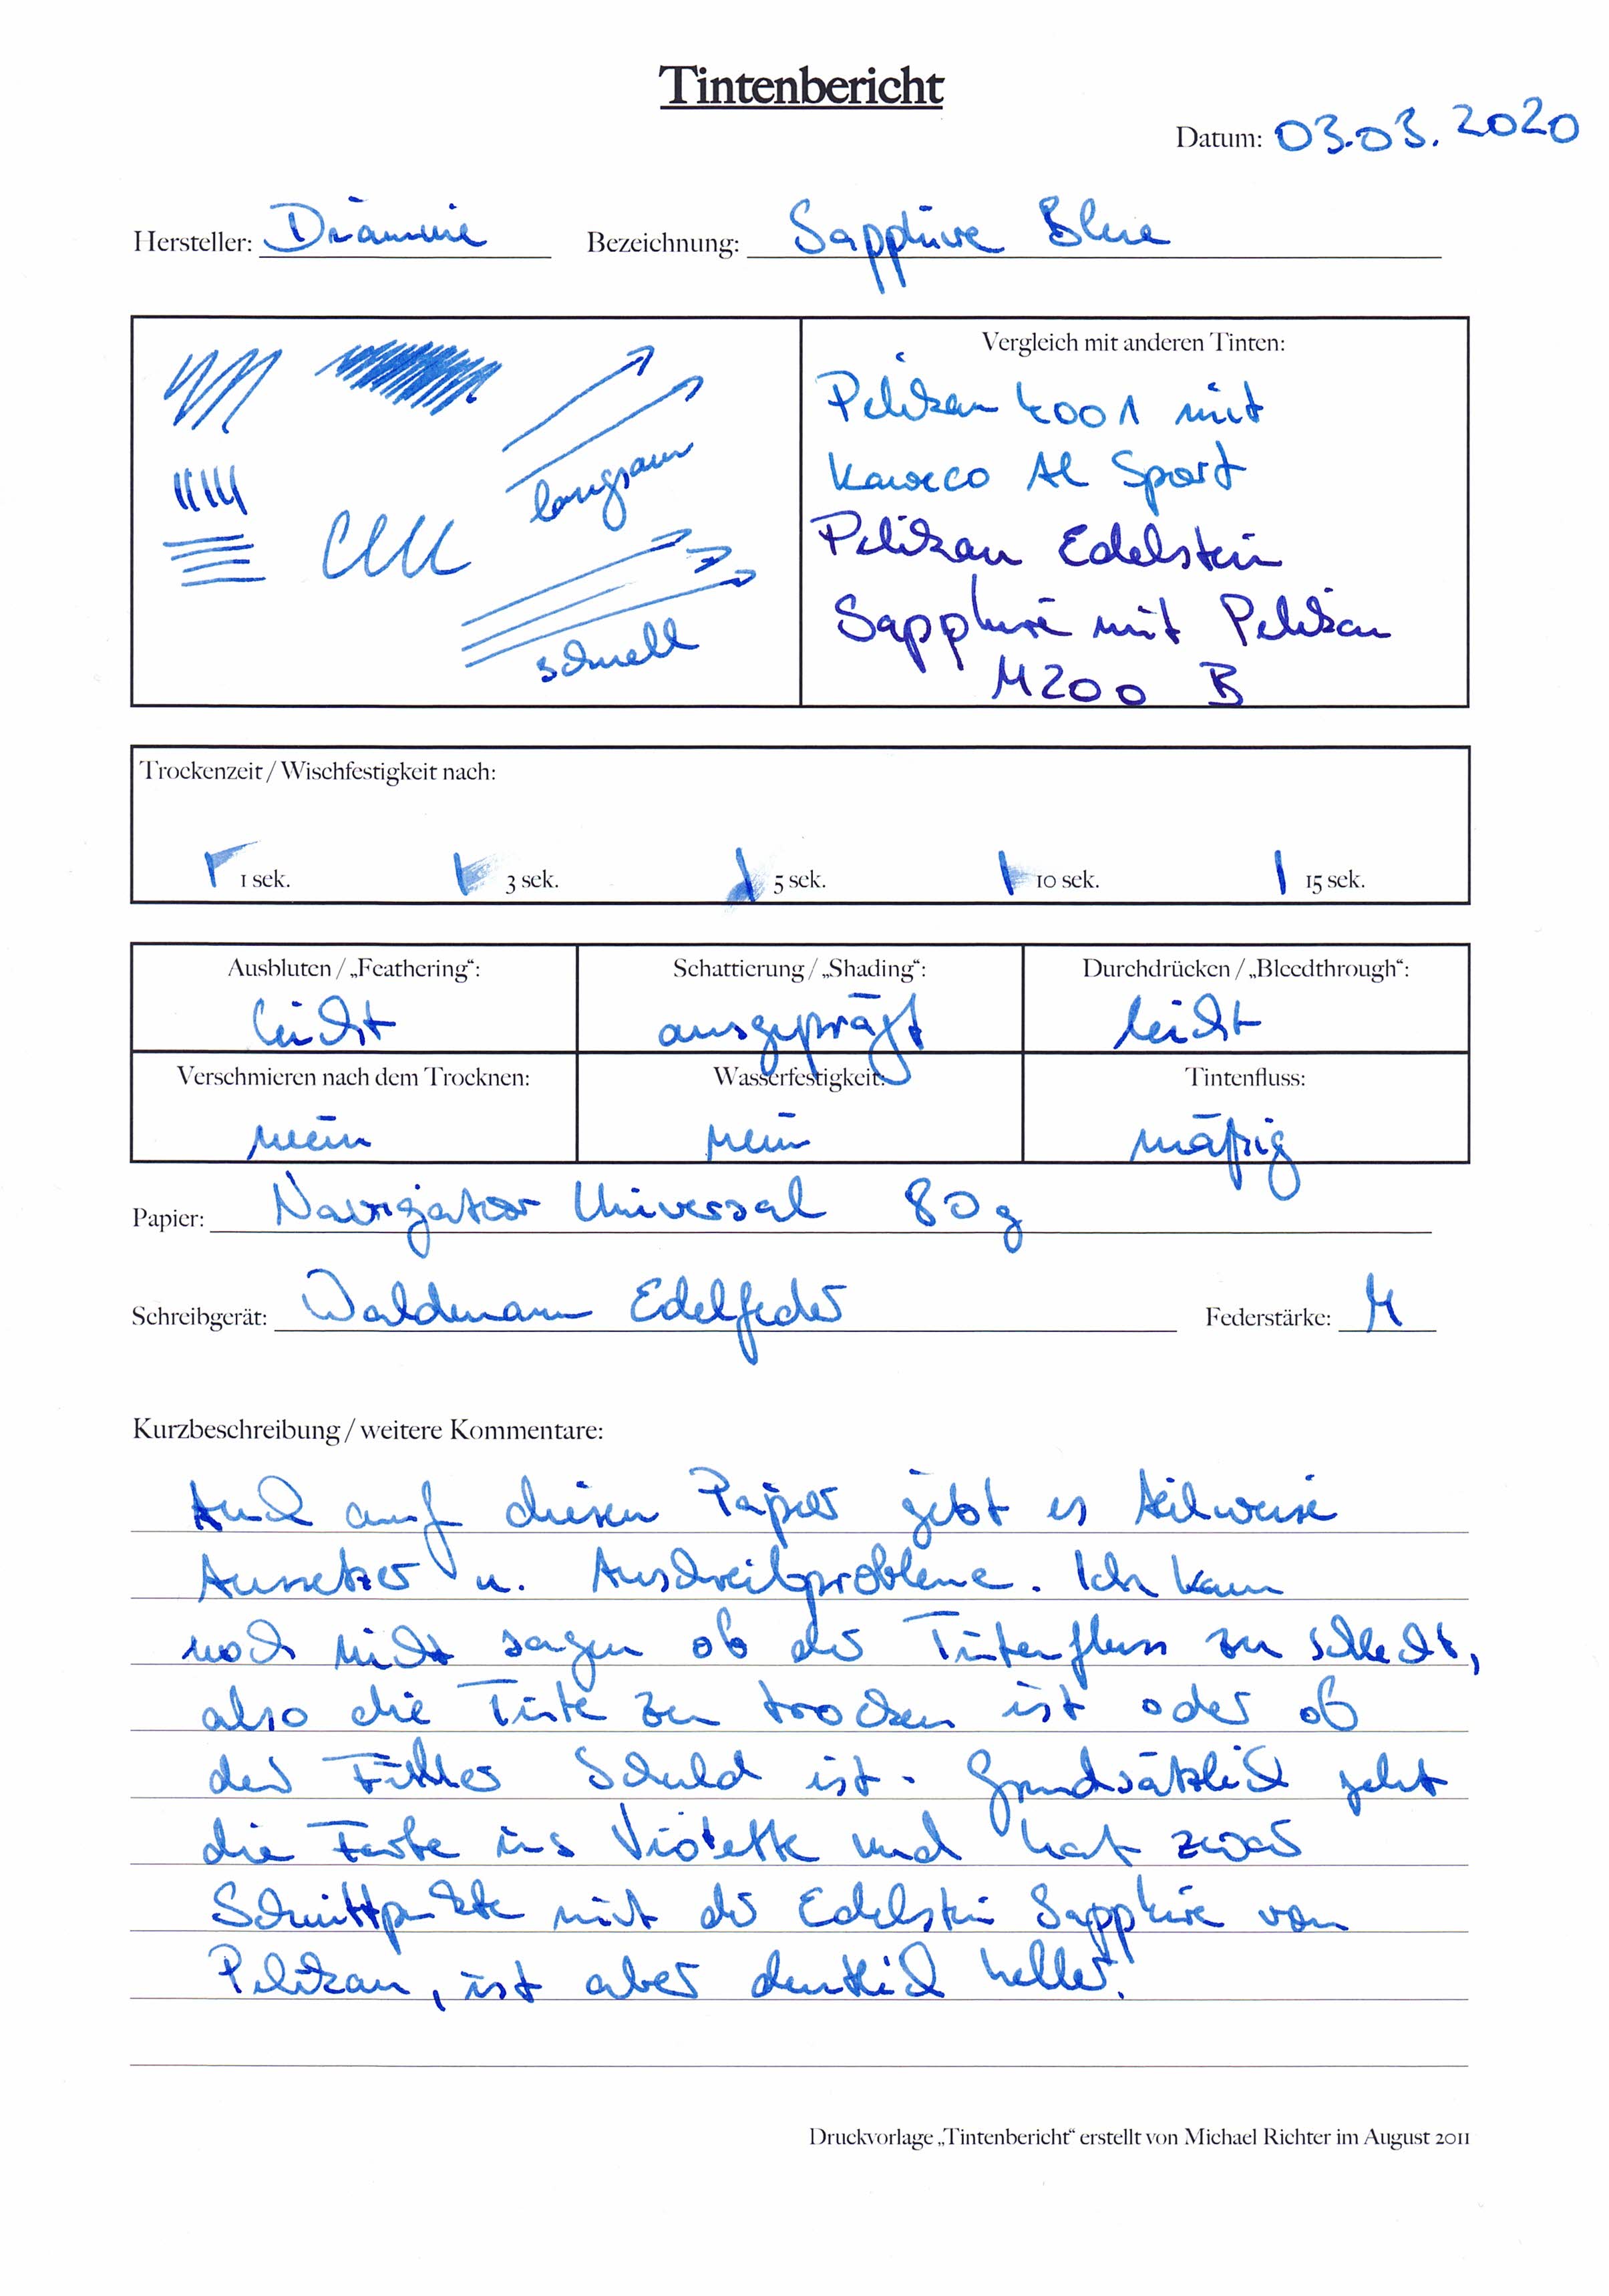 Tintenbericht
Datum: 03.03.2020
Hersteller: Diamine Bezeichnung: Sapphire Blue
Vergleich mit anderen Tinten:
Pelikan 4001 mit
Kaweco Al Sport
Pelikan Edelstein
Sapphire mit Pelikan
M200 B
langsam
schnell
Trockenzeit / Wischfestigkeit nach:
1 sek. 3 sek. 5 sek. 10 sek. 15 sek.
Ausbluten / „Feathering“: Schattierung / „Shading“: Durchdrücken / „Bleedthrough“:
leicht ausgeprägt leicht
Verschmieren nach dem Trocknen: Wasserfestigkeit: Tintenfluss:
nein nein mäßig
Papier: Navigator Universal 80g
Schreibgerät: Waldmann Edelfeder Federstärke: M
Kurzbeschreibung / weitere Kommentare:
Auch auf diesem Papier gibt es teilweise
Aussetzer u. Anschreibprobleme. Ich kann
noch nicht sagen ob der Tintenfluss zu schlecht,
also die Tinte zu trocken ist oder ob
der Füller Schuld ist. Grundsätzlich geht
die Farbe ins Violette und hat zwar
Schnittpunkte mit der Edelstein Sapphire von
Pelikan, ist aber deutlich heller!
Druckvorlage „Tintenbericht“ erstellt von Michael Richter im August 2011